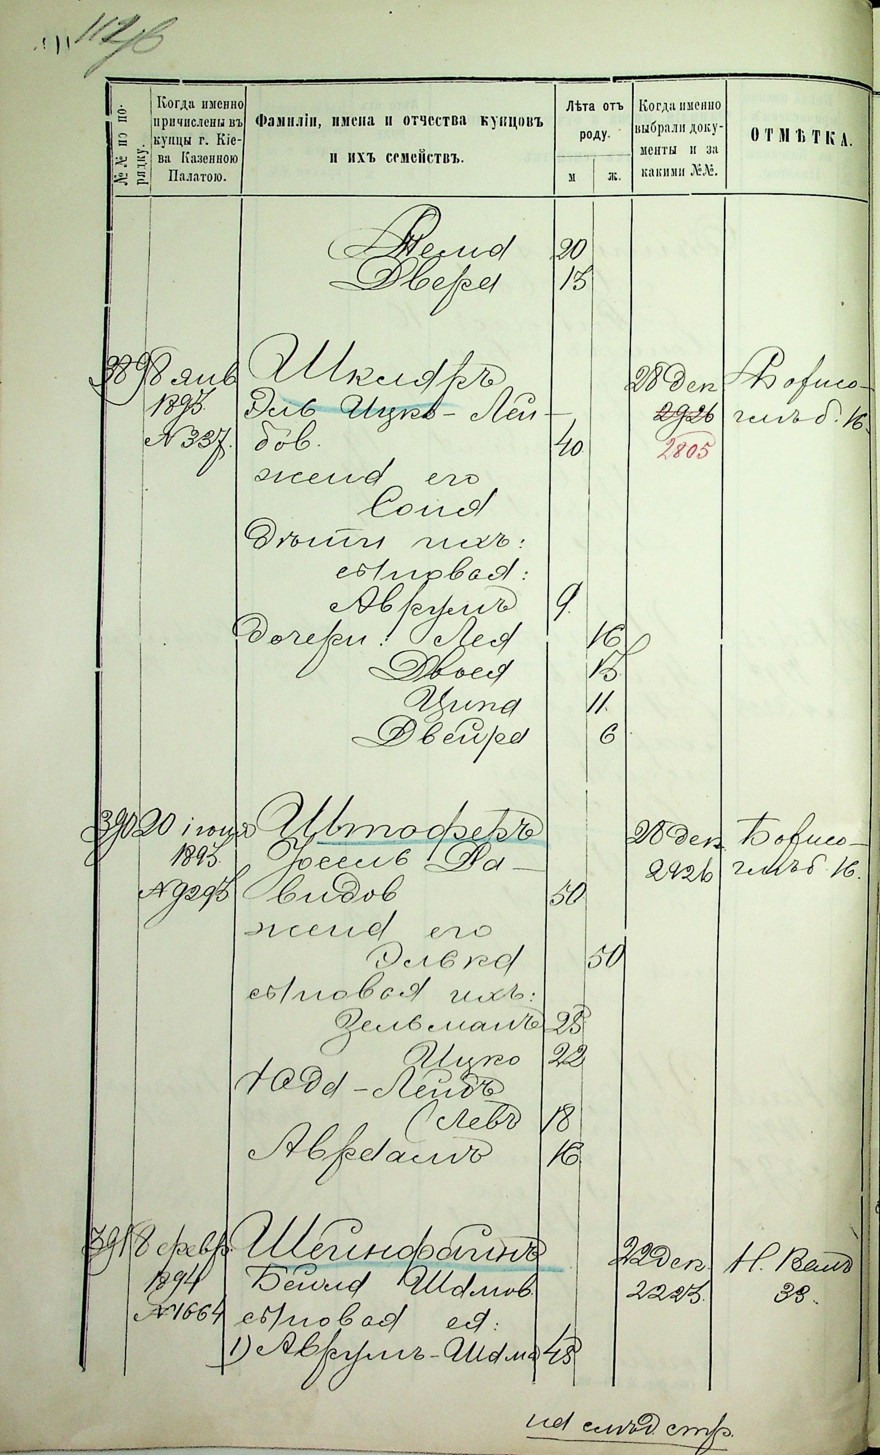 №№ по порядку.
Когда именно причислены въ купцы г. Кіева Казенною Палатою.
Фамиліи, имена и отчества купцовъ и ихъ семействъ.
Лѣта отъ роду.
м ж.
Когда именно выбрали документы и за какими №№.
ОТМѢТКА.
20
Двера 13
389 8 янв Шкляръ 28 дек Борисо-
1893. Эль Ицко-Лей- 2926 глѣб. 16.
N 337. бов. 40 2805
жена его
Соня
Дѣти ихъ:
сыновья:
Аврумъ 9.
Дочери: Лея 16
Двося 13
Ципа 11.
Двейра 6
390 20 іюня Штоферъ 28 дек. Борисо-
1893. Іосель Да- 2926 глѣб. 16.
N 9293 видов 50
жена его
Элька 50
сыновья ихъ:
Зельманъ 23
Ицко 22
Юда-Лейбъ
(Левъ 18
Авраамъ 16.
391 8 февр. Шейнфайнъ 22 Дек. Н. Валъ
1894 Бейла Шлмов. 2223. 33.
N 1664 сыновья ея:
1) Аврумъ-Шлма 43
на слѣд. стр.